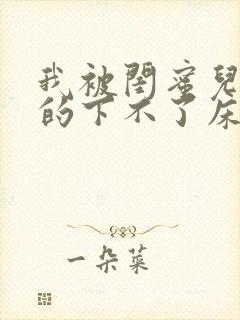 我被閨蜜兒
的下不了床
一朵菜